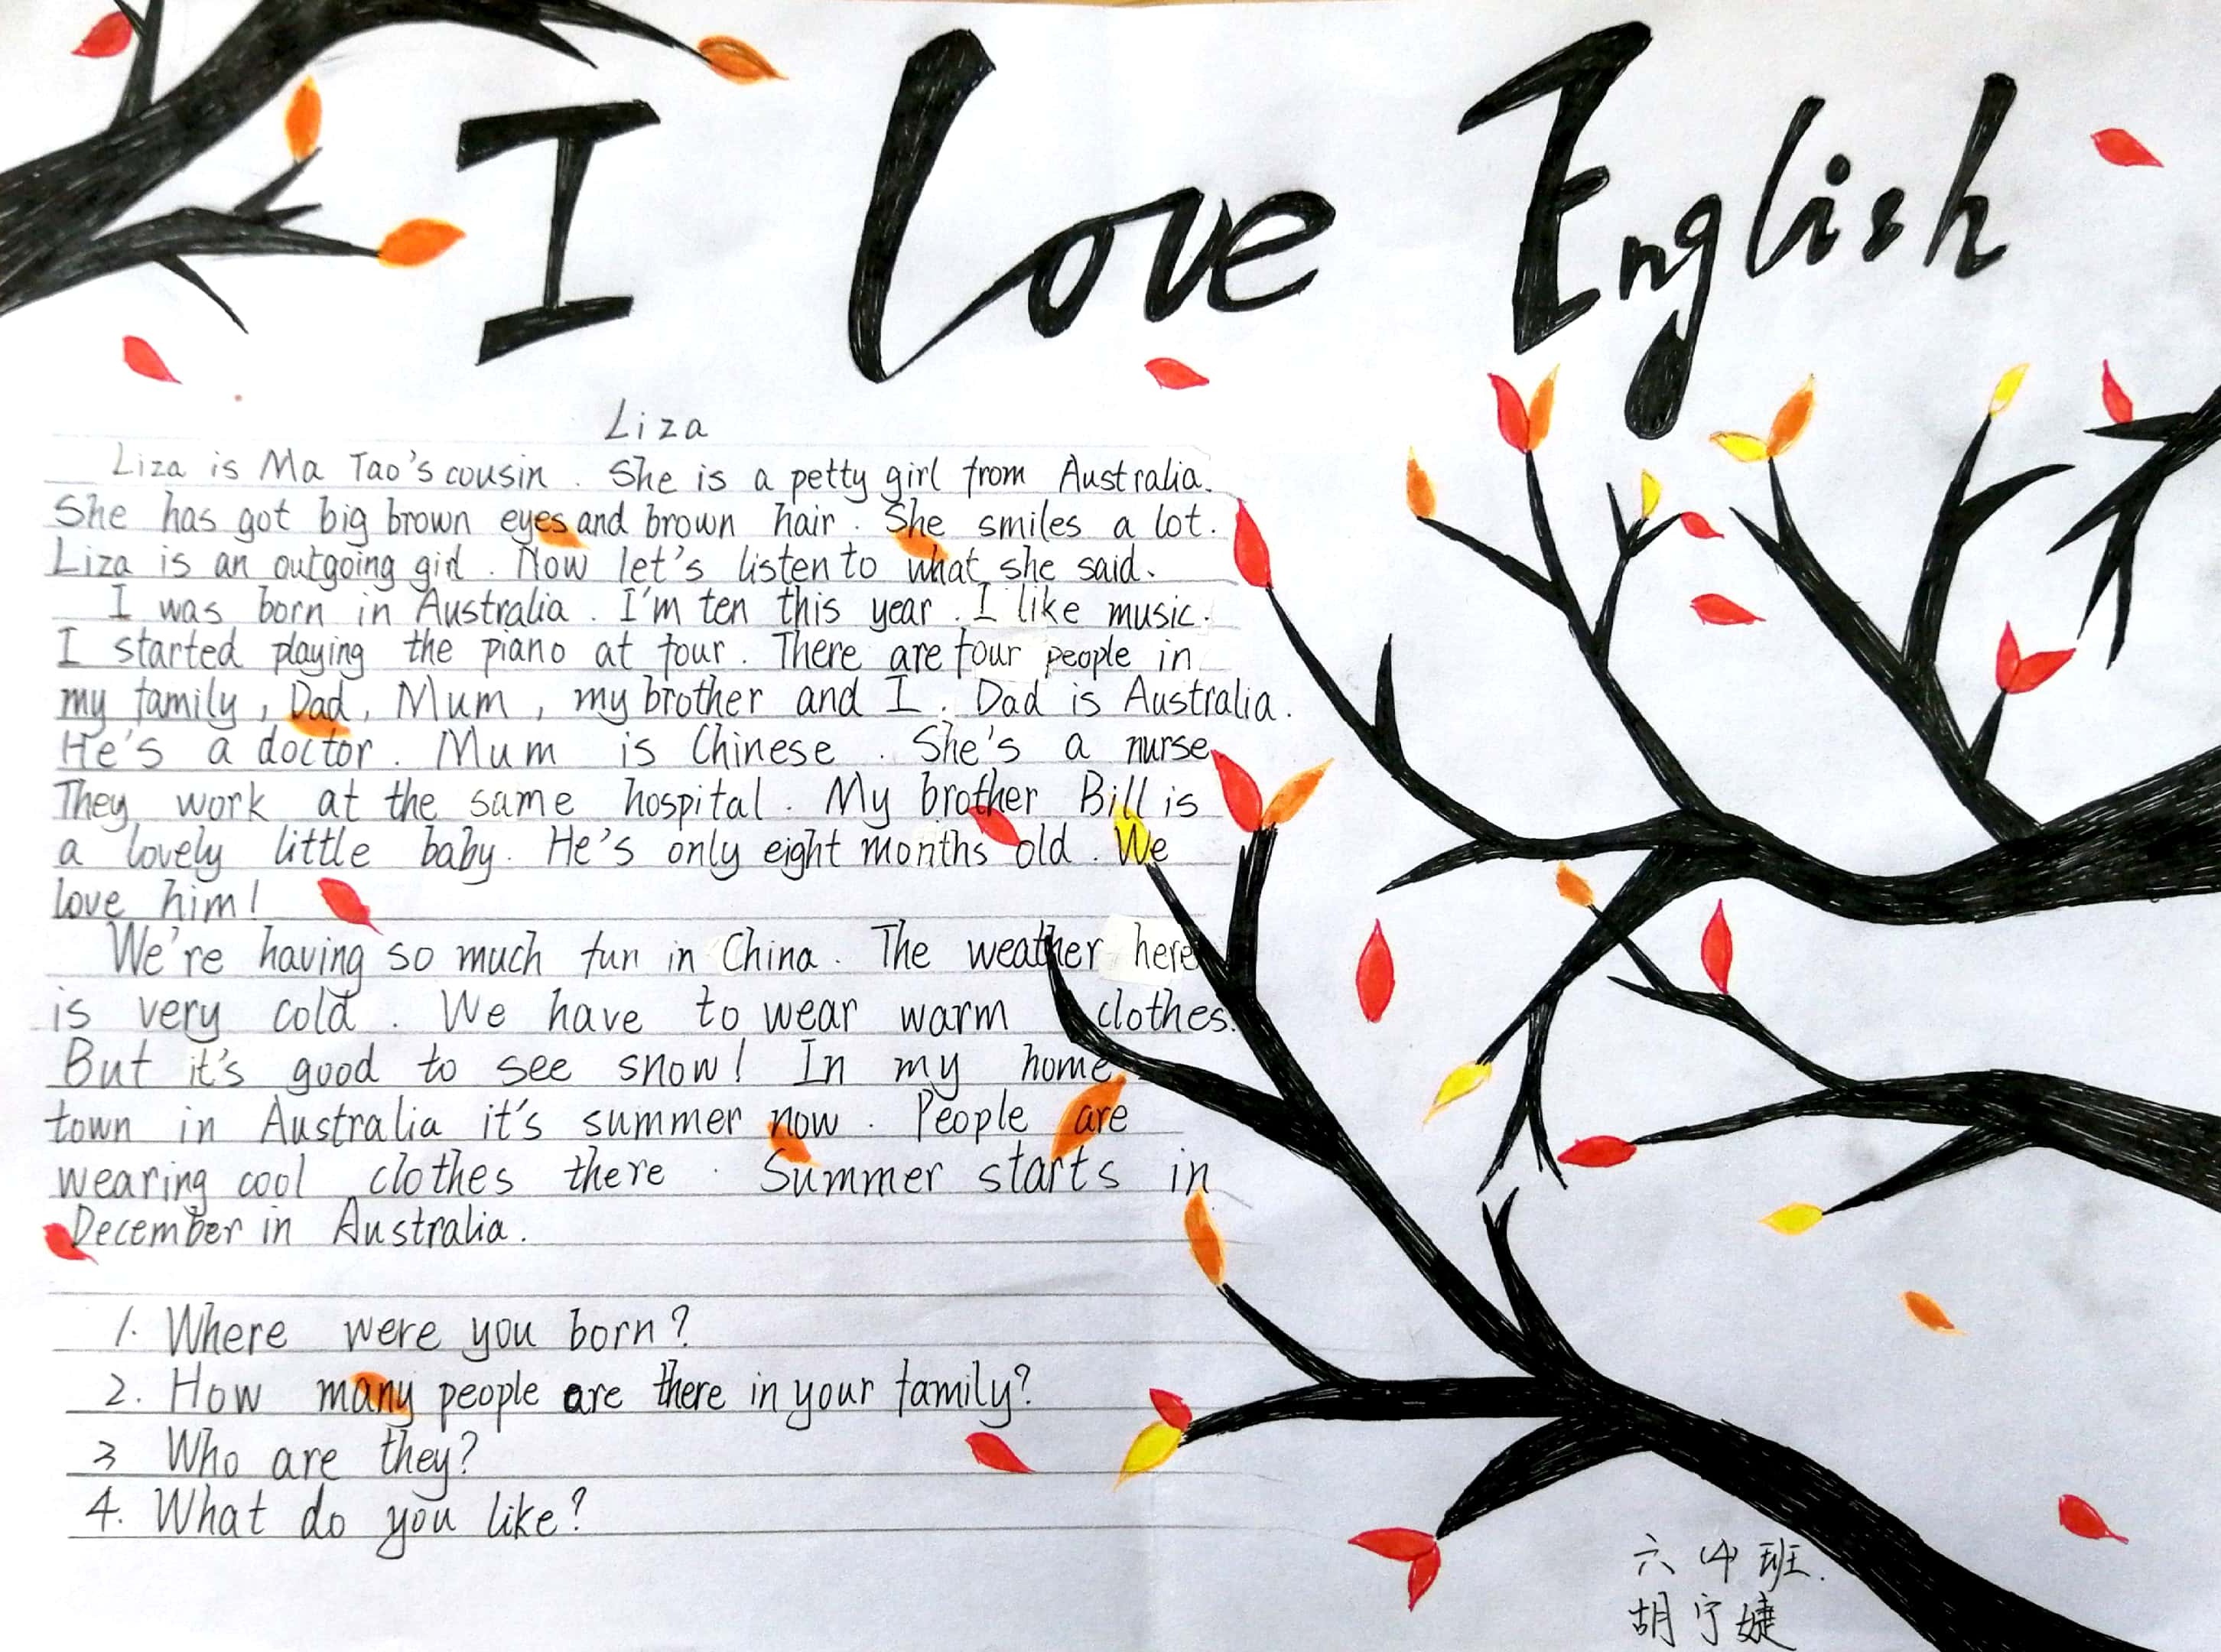 I Love English
Liza
Liza is Ma Tao's cousin. She is a petty girl from Australia.
She has got big brown eyes and brown hair. She smiles a lot.
Liza is an outgoing girl. Now let's listen to what she said.
I was born in Australia. I'm ten this year. I like music.
I started playing the piano at four. There are four people in
my family, Dad, Mum, my brother and I. Dad is Australia.
He's a doctor. Mum is Chinese. She's a nurse
They work at the same hospital. My brother Bill is
a lovely little baby. He's only eight months old. We
love him!
We're having so much fun in China. The weather here
is very cold. We have to wear warm clothes.
But it's good to see snow! In my home
town in Australia it's summer now. People are
wearing cool clothes there. Summer starts in
December in Australia.
1. Where were you born?
2. How many people are there in your family?
3 Who are they?
4. What do you like?
六(4)班.
胡宁婕